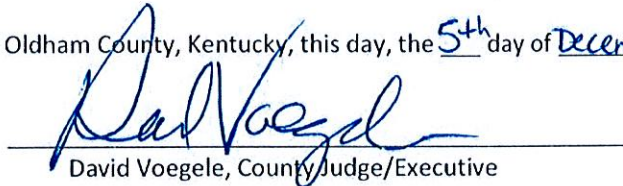 Oldham County, Kentucky, this day, the 5th day of Decem
David Voegele, County Judge/Executive